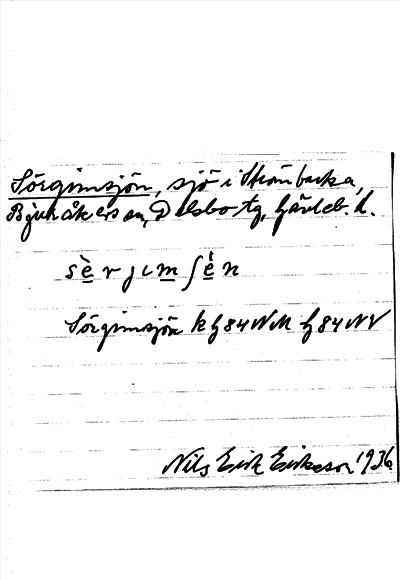 Sörgimsjön, sjö i Strömbacka,
Bjuråkers sn, Delsbo tg, Gävleb. l.
sè̱rɟım̱ʃé̱n
Sörgimsjön k h84NM h84NV
Nils Erik Eriksson 1936